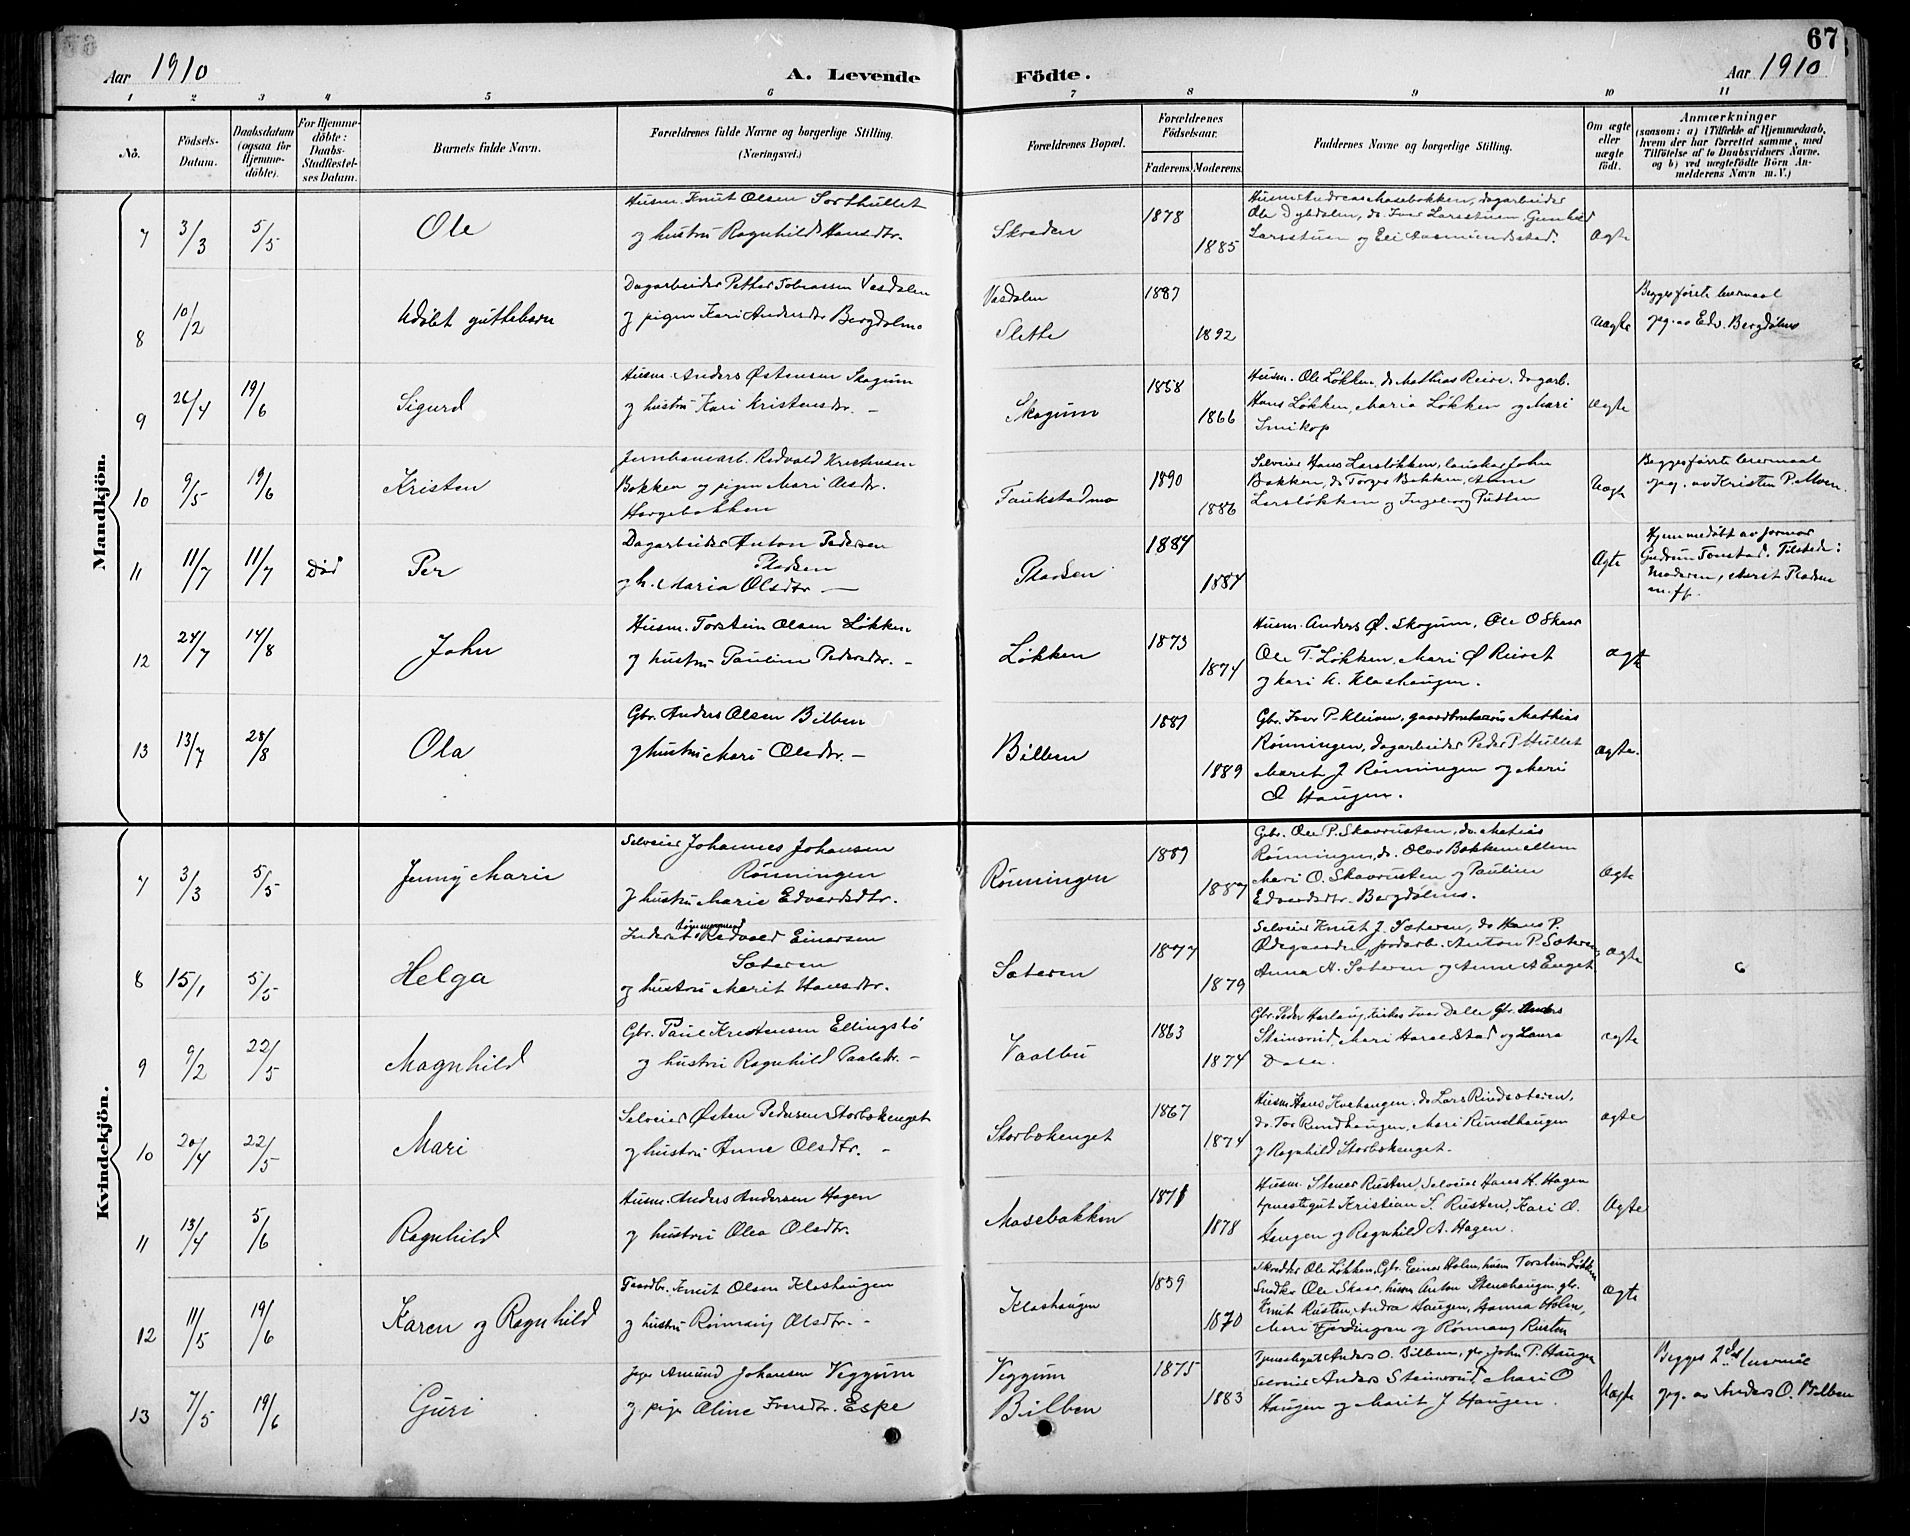 67
Aar 1910
A. Levende
Födte.
Aar 1910
1 2 3 4 5 6 7 8 9 10 11
No.
Födsels-
Datum.
Daabsdatum
(ogsaa for
Hjemme-
döbte).
For Hjemme-
döbte:
Daabs-
Stadfæstel-
ses Datum.
Barnets fulde Navn.
Forældrenes fulde Navne og borgerlige Stilling.
(Næringsvei.)
Forældrenes Bopæl.
Forældrenes
Födselsaar.
Faderens.
Moderens.
Faddernes Navne og borgerlige Stilling.
Om ægte
eller
uægte
födt.
Anmærkninger
(saasom: a) i Tilfælde af Hjemmedaab,
hvem der har forrettet samme, med
Tilföielse af to Daabsvidners Navne,
og b) ved uægtefödte Börn An-
melderens Navn m. V.)
Mandkjön.
7 3/3 5/5 Ole
Husm. Knut Olsen Sorthullet
og hustru Ragnhild Hansdtr.
Skreden 1878 1885
Husm Andreas Masebakken, dagarbeider
Ole Dybdalen, do Iver Larsstuen, Gunhild
Larsstuen og Eli Aasmundstad.
Ægte
8 10/2 Udøbt guttebarn
Dagarbeider Petter Tobiassen Vasdalen
og pigen Kari Andersdtr Bergdølmo
Vasdalen
Slette
1887 1892
Uægte
Begges første leiermaal
opg. av Edv. Bergdølmo
9 26/4 19/6 Sigurd
Husm. Anders Østensen Skogum
og hustru Kari Kristensdtr. –
Skogum 1858 1866
Husm. Ole Løkken, do Mathias Reire, dagarb.
Hans Løkken, Maria Løkken og Mari
Smikop
Ægte
10 9/5 19/6 Kristen
Jernbanearb. Redvald Kristensen
Bakken og pigen Mari Olsdtr.
Horgebakken
Taukstadmo 1890 1886
Selveier Hans Larsløkken, lauskar John
Bakken, do Torger Bakken, Anne
Larsløkken og Ingeborg Putten
Uægte
Begges første leiermaal
opg. av Kristen P. Moen.
11 11/7 11/7 Død Per
Dagarbeider Anton Pedersen
Pladsen
og h. Maria Olsdtr. –
Pladsen 1884 1884
Ægte
Hjemmedøbt av jormor
Gudrun Tonstad. Tilstede:
Moderen, Marit Pladsen
m. fl.
12 24/7 14/8 John
Husm. Torstein Olsen Løkken
og hustru Pauline Pedersdtr. –
Løkken 1873 1874
Husm. Anders Ø. Skogum, Ole O Skaar
Ole T. Løkken, Mari Ø Reiret
og Kari K. Klashaugen.
Ægte
13 13/7 28/8 Ola
Gbr. Anders Olsen Bilben
og hustru Mari Olsdtr. –
Bilben 1881 1889
Gbr. Iver P. Kleiven, gaardbruker Mathias
Rønningen, dagarbeider Peder P Hullet
Marit J Rønningen og Mari
O Haugen.
Ægte.
Kvindekjön.
7 3/3 5/5 Jenny Marie
Selveier Johannes Johansen
Rønningen
og hustru Marie Edvardsdtr.
Rønningen 1889 1887
Gbr. Ole P. Skavrusten, do Matias
Rønningen, do. Olav Bakkemellem
Mari O. Skavrusten og Pauline
Edvardsdtr. Bergdølmo.
Ægte
8 15/1 5/5 Helga
Inderst tømmermand Redvald Einarsen
Sæteren
og hustru Marit Hansdtr.
Sæteren 1877 1879
Selveier Knut J. Sæteren, do Hans P.
Ødegaarden, jordarb. Anton P. Sæteren
Anna H. Sæteren og Anne A Enget
Ægte
9 9/2 22/5 Magnhild
Gbr. Paul Kristensen Ellingsbø
og hustru Ragnhild Paalsdtr. –
Vaalbu 1863 1874
Gbr. Peder Harlaug, Iver Dalle Gbr. Anders
Steinsrud, Mari Haraldstad og Laura
Ægte
10 20/4 22/5 Mari
Selveier Østen Pedersen Storbækenget
og hustru Anne Olsdtr. –
Storbækenget 1867 1874
Husm Hans Kvehaugen, do Lars Rindsæteren,
do. Tor Rundhaugen, Mari Rundhaugen
og Ragnhild Storbækenget.
Ægte
11 13/4 5/6 Ragnhild
Husm. Anders Andersen Hagen
og hustru Olea Olsdtr.
Masebakken 1871 1878
Husm. Stener Rusten, Selveier Hans H. Hagen
tjenestegut Kristian S. Rusten, Kari O.
Haugen og Ragnhild A. Hagen.
Ægte
12 11/5 19/6 Karen og Ragnhild
Gaardbr. Knut Olsen Klashaugen
og hustru Rønnaug Olsdtr. –
Klashaugen 1859 1870
Skredder Ole Løkken, Gbr. Einar Holen, husm Torstein Løkken
Snedker Ole Skaar, husm Anton Stenshaugen, gbr.
Knut Rusten, Andra Haugen, Hanna Holen,
Mari Fjerdingren og Rønnaug Rusten
Ægte
13 7/5 19/6 Guri
Amund Johansen Veggum
og pige Oline Iversdtr. Espe
Veggum
Bilben
1875 1883
Tjenestegut Anders O. Bilben, John P. Haugen
Selveier Anders Steinsrud, Mari O
Haugen og Marit J Haugen.
Uægte
Begges 2det leiermål
opg. av Anders O. Bilben